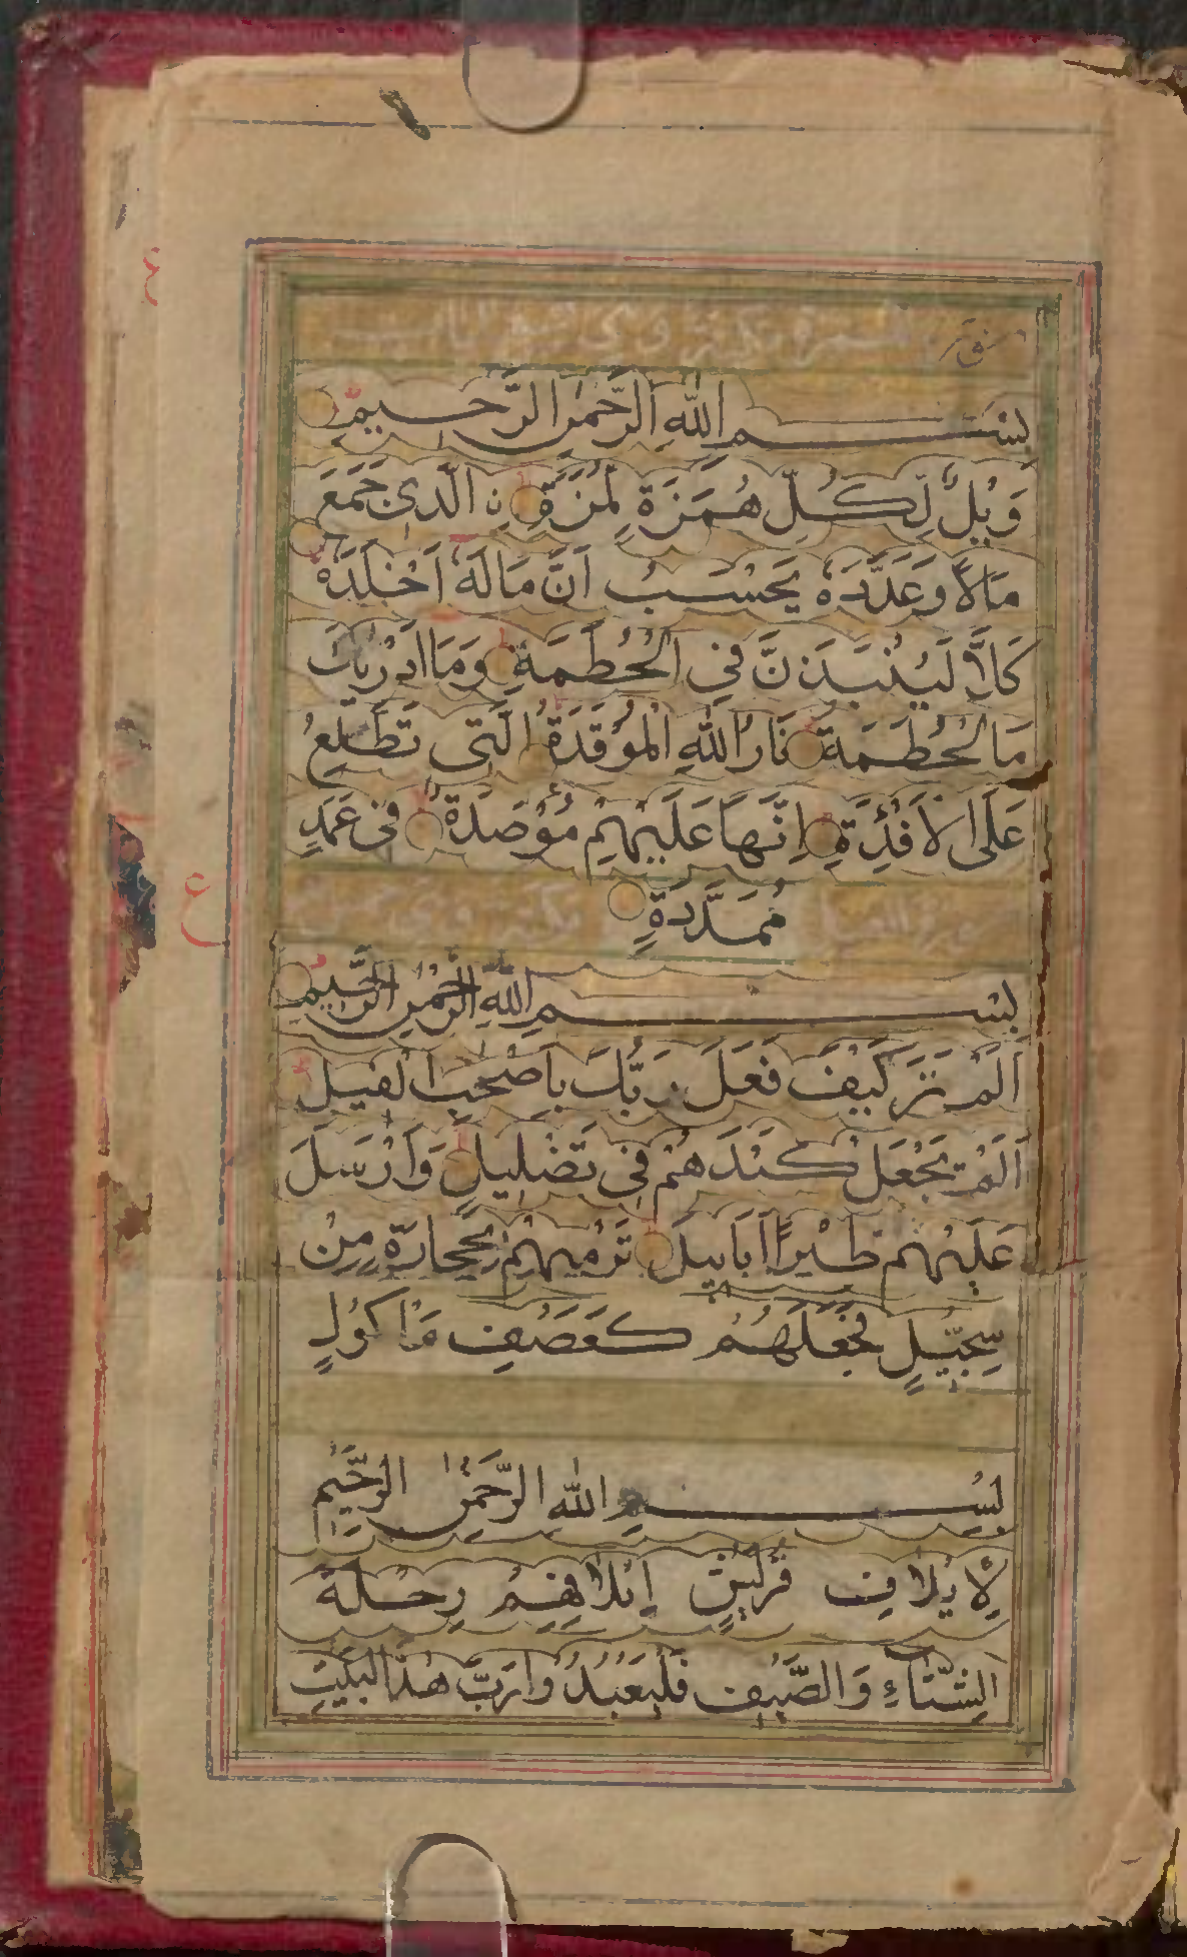 بِسْمِ اللهِ الرَّحْمٰنِ الرَّحِيمِ
وَيْلٌ لِّكُلِّ هُمَزَةٍ لُمَزَةٍ نِ الَّذِى جَمَعَ
مَالًا وَعَدَّدَهٗ يَحْسَبُ اَنَّ مَالَهٗ اَخْلَدَهٗ
كَلَّا لَيُنْبَذَنَّ فِى الْحُطَمَةِ وَمَا اَدْرٰيكَ
مَا الْحُطَمَةُ نَارُ اللهِ الْمُوْقَدَةُ الَّتِى تَطَّلِعُ
عَلَى الْاَفْئِدَةِ اِنَّهَا عَلَيْهِمْ مُؤْصَدَةٌ فِى عَمَدٍ
مُمَدَّدَةٍ
بِسْمِ اللهِ الرَّحْمٰنِ الرَّحِيمِ
اَلَمْ تَرَ كَيْفَ فَعَلَ رَبُّكَ بِاَصْحٰبِ الْفِيلِ
اَلَمْ يَجْعَلْ كَيْدَهُمْ فِى تَضْلِيلٍ وَاَرْسَلَ
عَلَيْهِمْ طَيْرًا اَبَابِيلَ تَرْمِيهِمْ بِحِجَارَةٍ مِنْ
سِجِّيلٍ فَجَعَلَهُمْ كَعَصْفٍ مَاْكُولٍ
بِسْمِ اللهِ الرَّحْمٰنِ الرَّحِيمِ
لِاِيْلَافِ قُرَيْشٍ اِيْلَافِهِمْ رِحْلَةَ
الشِّتَاءِ وَالصَّيْفِ فَلْيَعْبُدُوا رَبَّ هٰذَا الْبَيْتِ